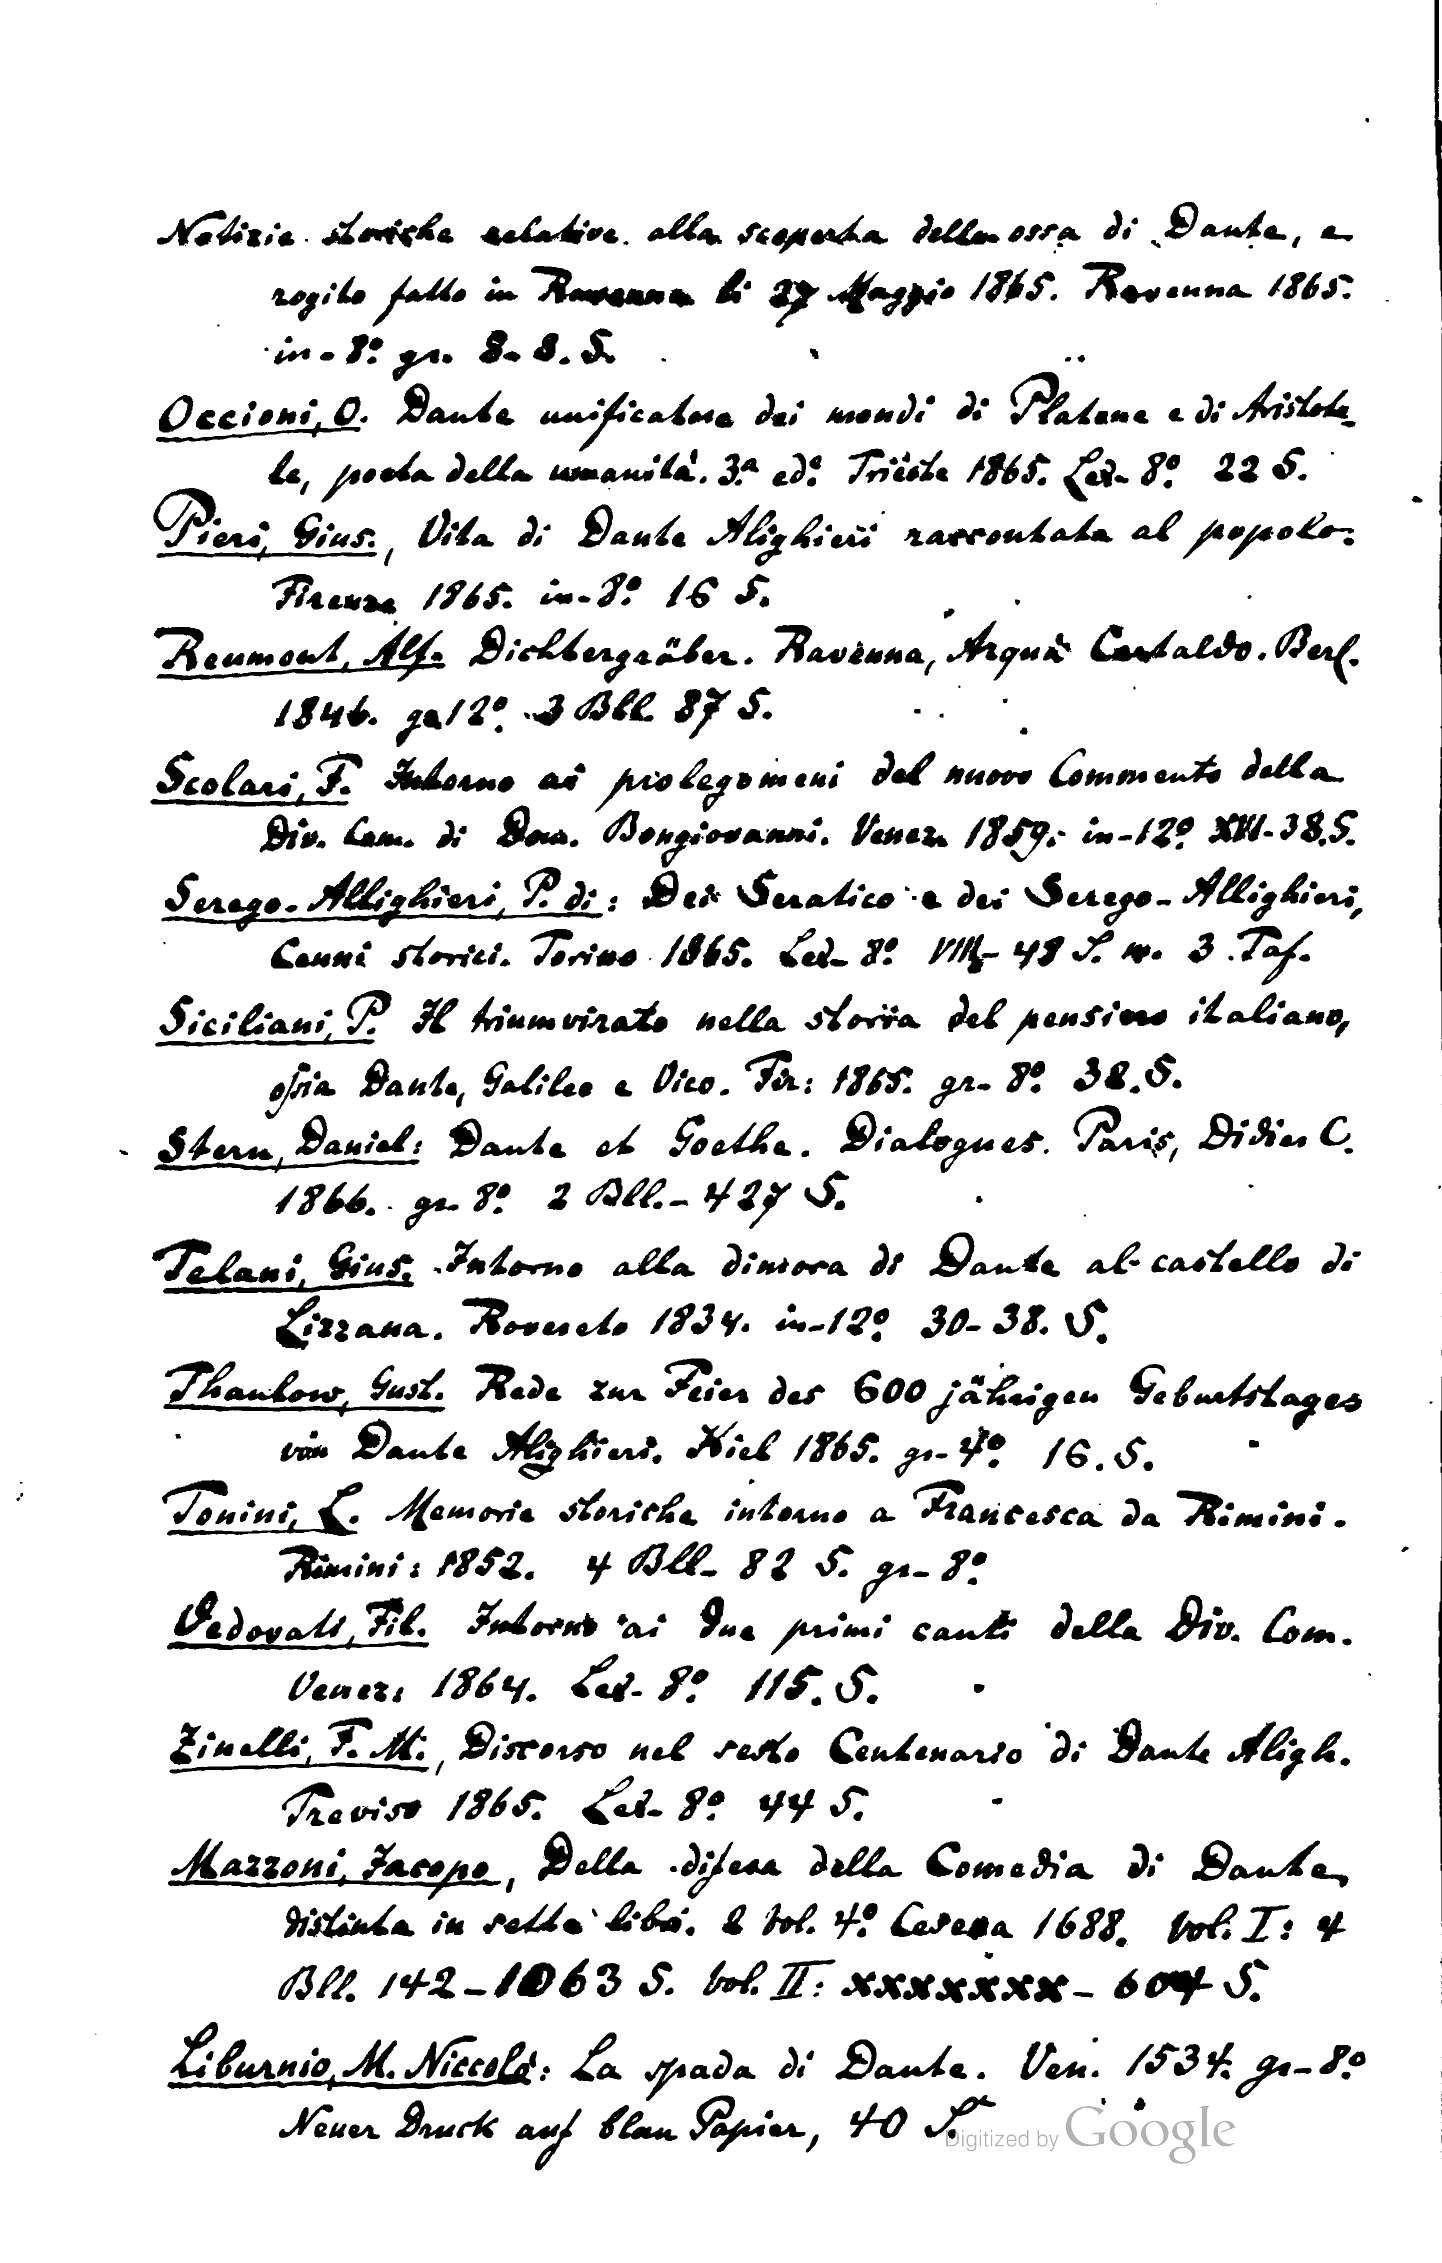 Notizie storiche relative alla scoperta delle ossa di Dante, e
rogito fatto in Ravenna li 27 Maggio 1865. Ravenna 1865.
in-8º. gr. 8. S.
Occioni, O. Dante unificatore dei mondi di Platone e di Aristote-
le, poeta della umanità. 3.a ed.e Trieste 1865. Lex-8º. 22 S.
Pieri, Gius., Vita di Dante Alighieri raccontata al popolo.
Firenze 1865. in-8º. 16 S.
Reumont, Alf. Dichtergräber. Ravenna, Arquà Certaldo. Berl.
1846. gr 12º. 3 Bll. 87 S.
Scolari, F. Intorno ai prolegomeni del nuovo Commento della
Div. Com. di Dom. Bongiovanni. Venez. 1859. in-12º. XVI-38.S.
Serego-Allighieri, P. di: Dei Seratico e dei Serego-Allighieri,
Cenni storici. Torino 1865. Lex-8º. VIII-48 S. m. 3 Taf.
Siciliani, P. Il triumvirato nella storia del pensiero italiano,
ossia Dante, Galileo e Vico. Fir: 1865. gr-8º. 38.S.
Stern, Daniel: Dante et Goethe. Dialogues. Paris, Didier C.
1866. gr. 8º. 2 Bll.-427 S.
Telani, Gius. Intorno alla dimora di Dante al castello di
Lizzana. Rovereto 1834. in-12º. 30-38. S.
Thaulow, Gust. Rede zur Feier des 600 jährigen Geburtstages
von Dante Alighieri. Kiel 1865. gr-4º. 16. S.
Tonini, L. Memorie storiche intorno a Francesca da Rimini.
Rimini: 1852. 4 Bll- 82 S. gr-8º.
Vedovati, Fil. Intorno ai due primi canti della Div. Com.
Venez: 1864. Lex-8º. 115. S.
Zinelli, F. M., Discorso nel sesto Centenario di Dante Aligh.
Treviso 1865. Lex-8º. 44 S.
Mazzoni, Jacopo, Della difesa della Comedia di Dante,
distinta in sette libri. 2 vol. 4º. Cesena 1688. Vol. I: 4
Bll. 142-1063 S. Vol. II: xxxxxxx-604 S.
Liburnio, M. Niccolò: La spada di Dante. Ven. 1534. gr-8º
Neuer Druck auf blau Papier, 40 S.
Digitized by Google